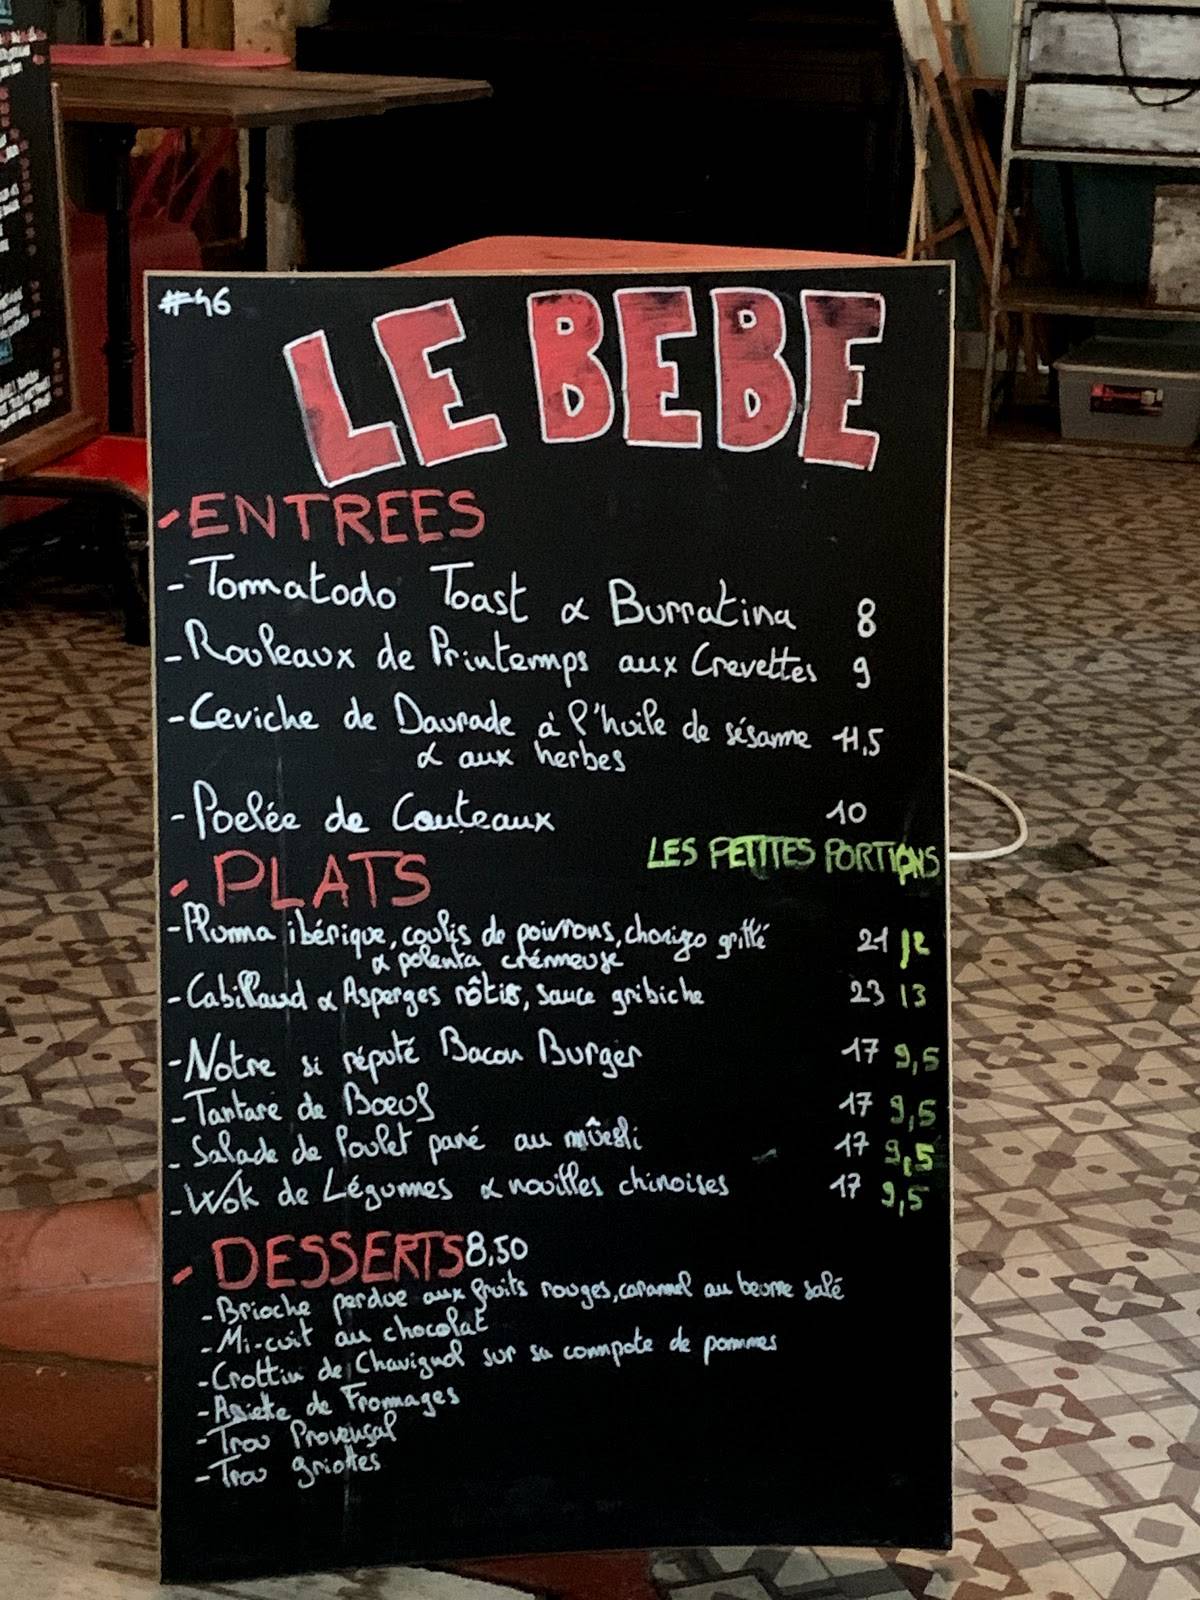 #46
LE BEBE
- ENTREES
- Tomatodo Toast & Burratina 8
- Rouleaux de Printemps aux Crevettes 9
- Ceviche de Daurade à l'huile de sésame 11,5
& aux herbes
- Poelée de Couteaux 10
LES PETITES PORTIONS
- PLATS
- Pluma ibérique, coulis de poivrons, chorizo grillé 21 12
& polenta crémeuse
- Cabillaud & Asperges rôtis, sauce gribiche 23 13
- Notre si réputé Bacon Burger 17 9,5
- Tartare de Boeuf 17 9,5
- Salade de Poulet pané au mûesli 17 9,5
- Wok de Légumes & nouilles chinoises 17 9,5
- DESSERTS 8,50
- Brioche perdue aux fruits rouges, caramel au beurre salé
- Mi-cuit au chocolat
- Crottin de Chavignol sur sa compote de pommes
- Assiette de Fromages
- Trou Provençal
- Trou griottes